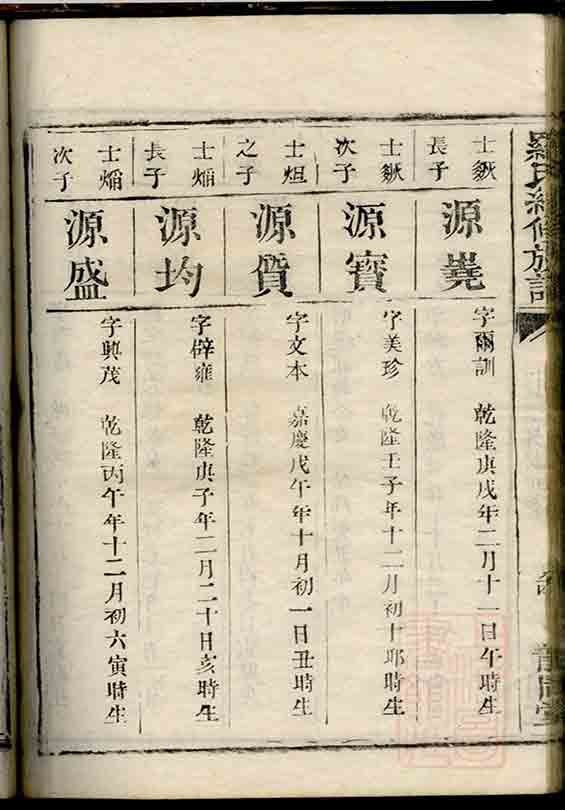 羅氏續修族譜
士歘
長子
源堯
字爾訓 乾隆庚戌年二月十一日午時生
士歘
次子
源寶
字美珍 乾隆壬子年十二月初十卯時生
士烜
之子
源質
字文本 嘉慶戊午年十月初一日丑時生
士煏
長子
源均
字辟雍 乾隆庚子年二月二十日亥時生
士煏
次子
源盛
字興茂 乾隆丙午年十二月初六寅時生